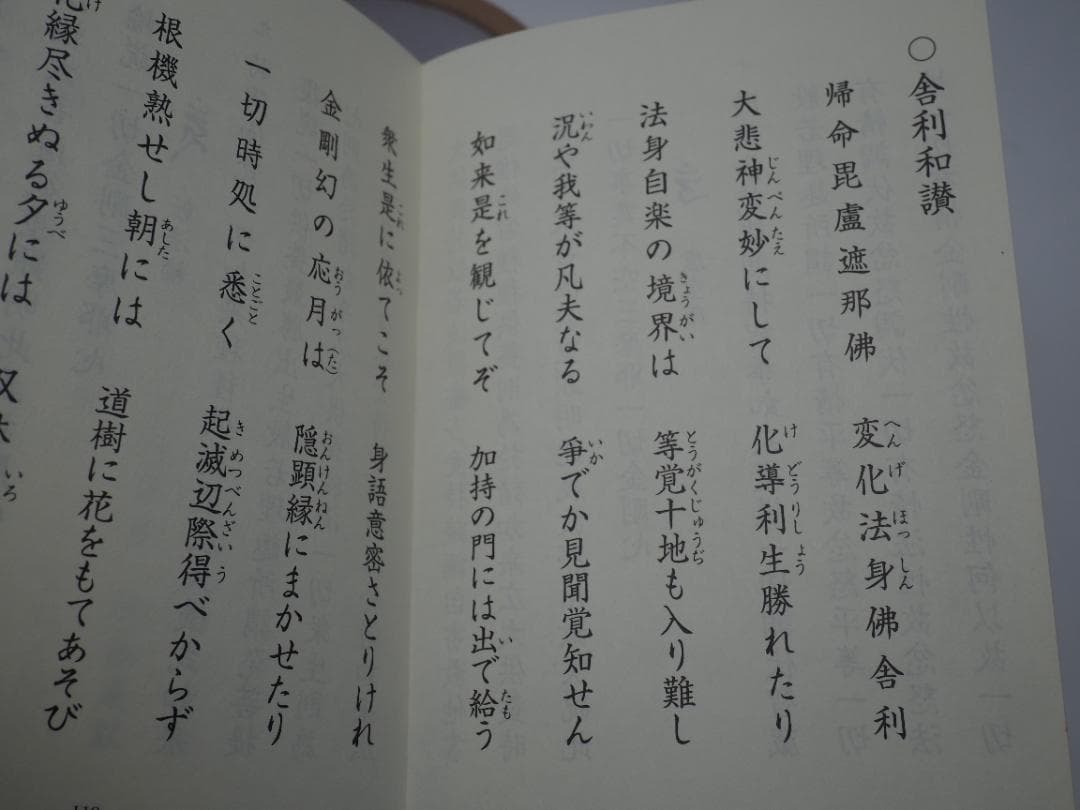 ○舎利和讃
帰命毘盧遮那佛 変化法身佛舎利
大悲神変妙にして 化導利生勝れたり
法身自楽の境界は 等覚十地も入り難し
況や我等が凡夫なる 争でか見聞覚知せん
如来是を観じてぞ 加持の門には出で給う
衆生是に依てこそ 身語意密さとりけれ
金剛幻の応月は 隠顕縁にまかせたり
一切時処に悉く 起滅辺際得べからず
根機熟せし朝には 道樹に花をもてあそび
化縁尽きぬる夕には